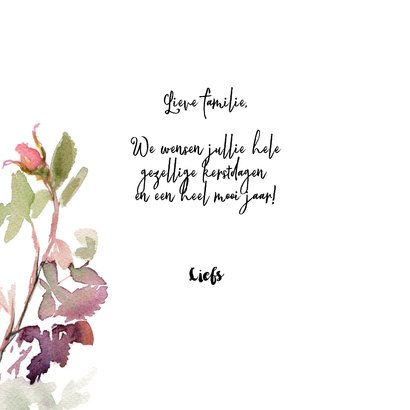 Lieve familie,
We wensen jullie hele
gezellige kerstdagen
en een heel mooi jaar!
Liefs